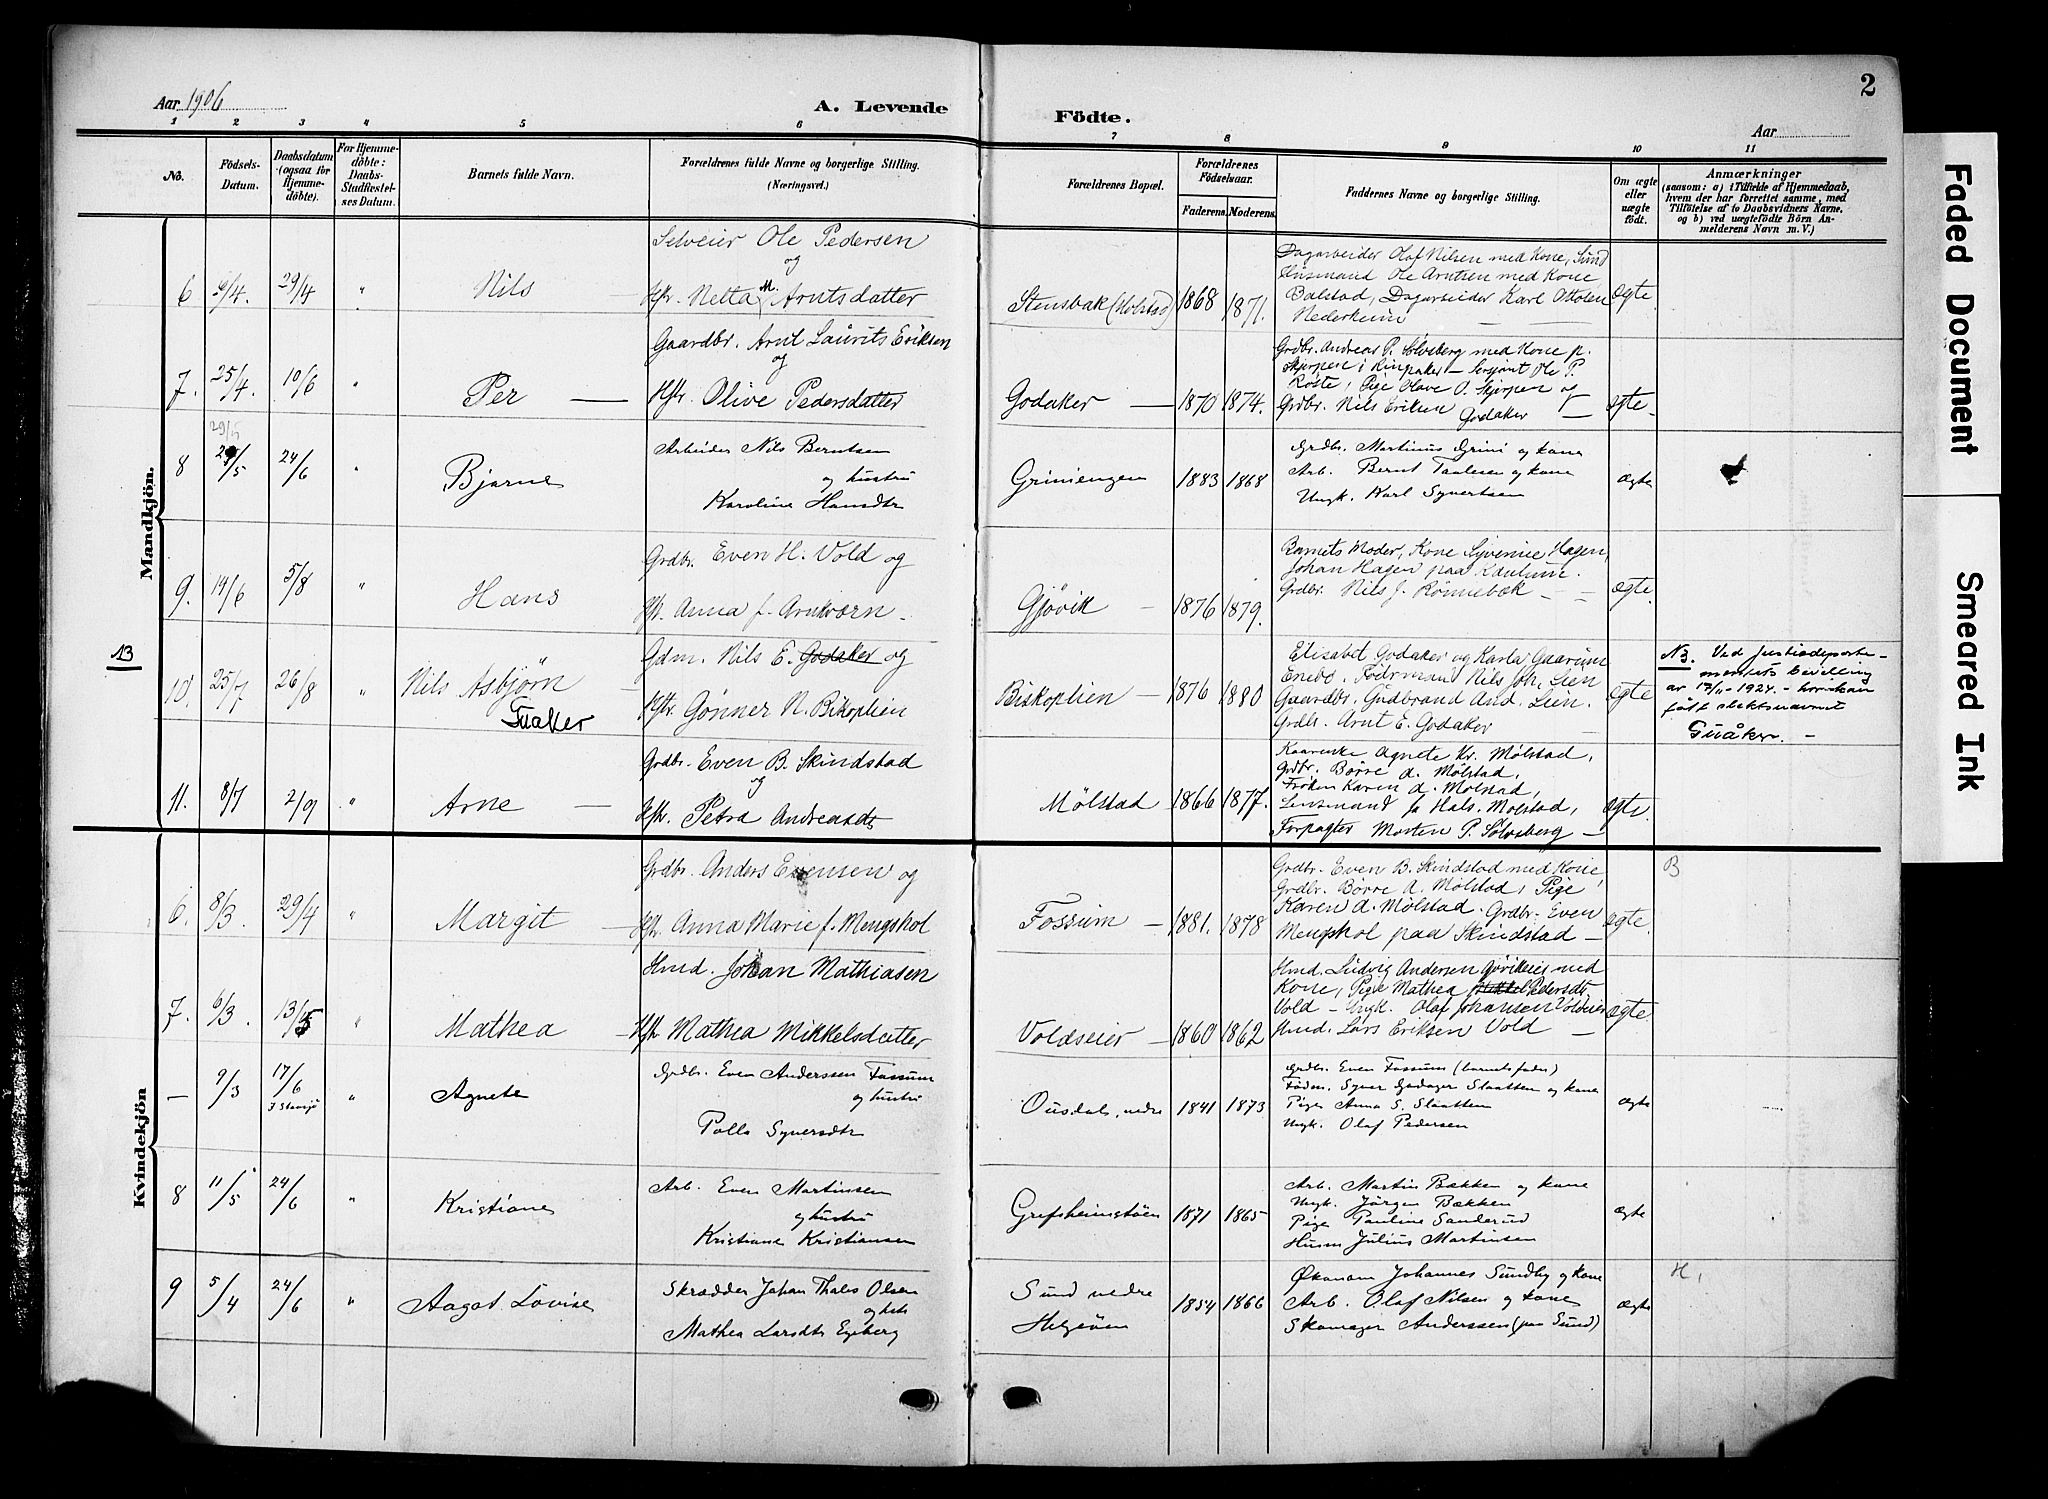 2
Aar 1906
A. Levende
Födte.
Aar
1 2 3 4 5 6 7 8 9 10 11
No.
Födsels-
Datum.
Daabsdatum
(ogsaa for
Hjemme-
döbte).
For Hjemme-
döbte:
Daabs-
Stadfæstel-
ses Datum.
Barnets fulde Navn.
Forældrenes fulde Navne og borgerlige Stilling.
(Næringsvei.)
Forældrenes Bopæl.
Forældrenes
Födselsaar.
Faderens. Moderens.
Faddernes Navne og borgerlige Stilling.
Om ægte
eller
uægte
födt.
Anmærkninger
(saasom: a) i Tilfælde af Hjemmedaab,
hvem der har forrettet samme, med
Tilföielse af to Daabsvidners Navne,
og b) ved uægtefödte Börn An-
melderens Navn m. V.)
Mandkjön.
13
6 6/4. 29/4 " Nils
Selveier Ole Pedersen
og
Hstr. Netta M. Arntsdatter
Stensbak (Holstad) 1868 1871.
Dagarbeider Olaf Nilsen med Kone, Sund
Husmand Ole Arntsen med Kone
Balstad, Dagarbeider Karl Ottosen
Nederheim
ægte
7. 25/4. 10/6 " Per
Gaardbr. Arnt Laurits Eriksen
og
Hstr. Olive Pedersdatter
Godaker 1870 1874.
Grdbr. Andreas P. Sølvsberg med Kone p.
Skjerpen i Ringsaker – Sersjant Ole P.
Røste, Pige Olave O. Skjerpen og
Grdbr. Nils Eriksen Godaker
ægte
8 29/5 24/6 " Bjarne
Arbeider Nils Berntsen
og hustru
Karoline Hansdtr
Griniengen 1883 1868
Grdbr. Martinus Grini og kone
Arb. Bernt Paulsen og kone
Ungk. Karl Syvertsen
ægte
9. 14/6 5/8 " Hans
Grdbr. Even H. Vold og
Hstr. Anna f. Arnkværn
Gjøvik 1876 1879.
Barnets Moder, Kone Syverine Hagen,
Johan Hagen paa
Grdbr. Nils J. Rønnebæk
ægte.
10. 25/7 26/8 " Nils Asbjörn
Guaker
Gdm. Nils E. Godaker og
Hstr. Gønner N. Biskoplien
Biskoplien 1876 1880
Elisabet Godaker og Karla Gaarum
Enebo, Födrmand Nils Joh. Lien
Gaardbr. Gudbrand And. Lien.
Grdbr. Arnt E. Godaker
ægte
NB. Ved Justisdeparte-
mentets bevilling
av 17/11-1924 – har han
fått slektsnavnet
Guåker.
11. 8/7 2/9 " Arne
Grdbr. Even B. Skindstad
og
Hstr. Petra Andreasdtr
Mølstad 1866 1877.
Kaarenke Agnete Kr. Mølstad,
Grdbr. Børre A. Mølstad,
Frøken Karen A. Mølstad,
Lensmand Hals. Mølstad,
Forpagter Morten P. Sølvsberg
ægte
Kvindekjön
6. 8/3 29/4 " Margit
Grdbr. Anders Evensen og
Hstr. Anna Marie f. Mengshol
Fossum 1881. 1878
Grdbr. Even B. Skindstad med Kone,
Grdbr. Børre A. Mølstad, Pige
Karen A. Mølstad. Grdbr. Even
Mengshol paa Skindstad
ægte. B
7. 6/3. 13/5 " Mathea
Hmd. Johan Mathiasen
Hstr Mathea Mikkelsdatter
Voldseier 1860 1862
Hmd. Ludvig Andersen Gjøvikeie med
Kone, Pige Mathea Pedersdtr
Vold – Ungk. Olaf Johansen Voldseier
Hmd. Lars Eriksen Vold
ægte
– 9/3 17/6 " Agnete
I Stavsjø
Grdbr. Even Anderssen Fossum
og hustru
Polla Syversdtr
Ousdal, nedre 1841 1873
Grdbr. Even Fossum (barnets fader)
Fødm. Syver Godager Slaatten og kone
Pige Anna S. Slaatten
Ungk. Olaf Pedersen
ægte
8 11/5 24/6 " Kristiane
Arb. Even Martinsen
og hustru
Kristiane Kristiansen
Grefsheimstøen 1871 1865
Arb. Martin Bækken og kone
Ungk. Jørgen Bækken
Pige Pauline Sanderud
Husm Julius Martinsen
ægte
9 5/4 24/6 " Aagot Lovise
Skrædder Johan Thales Olsen
og hstr
Mathea Larsdtr Egeberg
Sund nedre
Helgøen
1854 1866
Økonom Johannes Sundby og kone
Arb. Olaf Nilsen og kone
Skomager Anderssen (paa Sund)
ægte H,
Faded Document
Smeared Ink